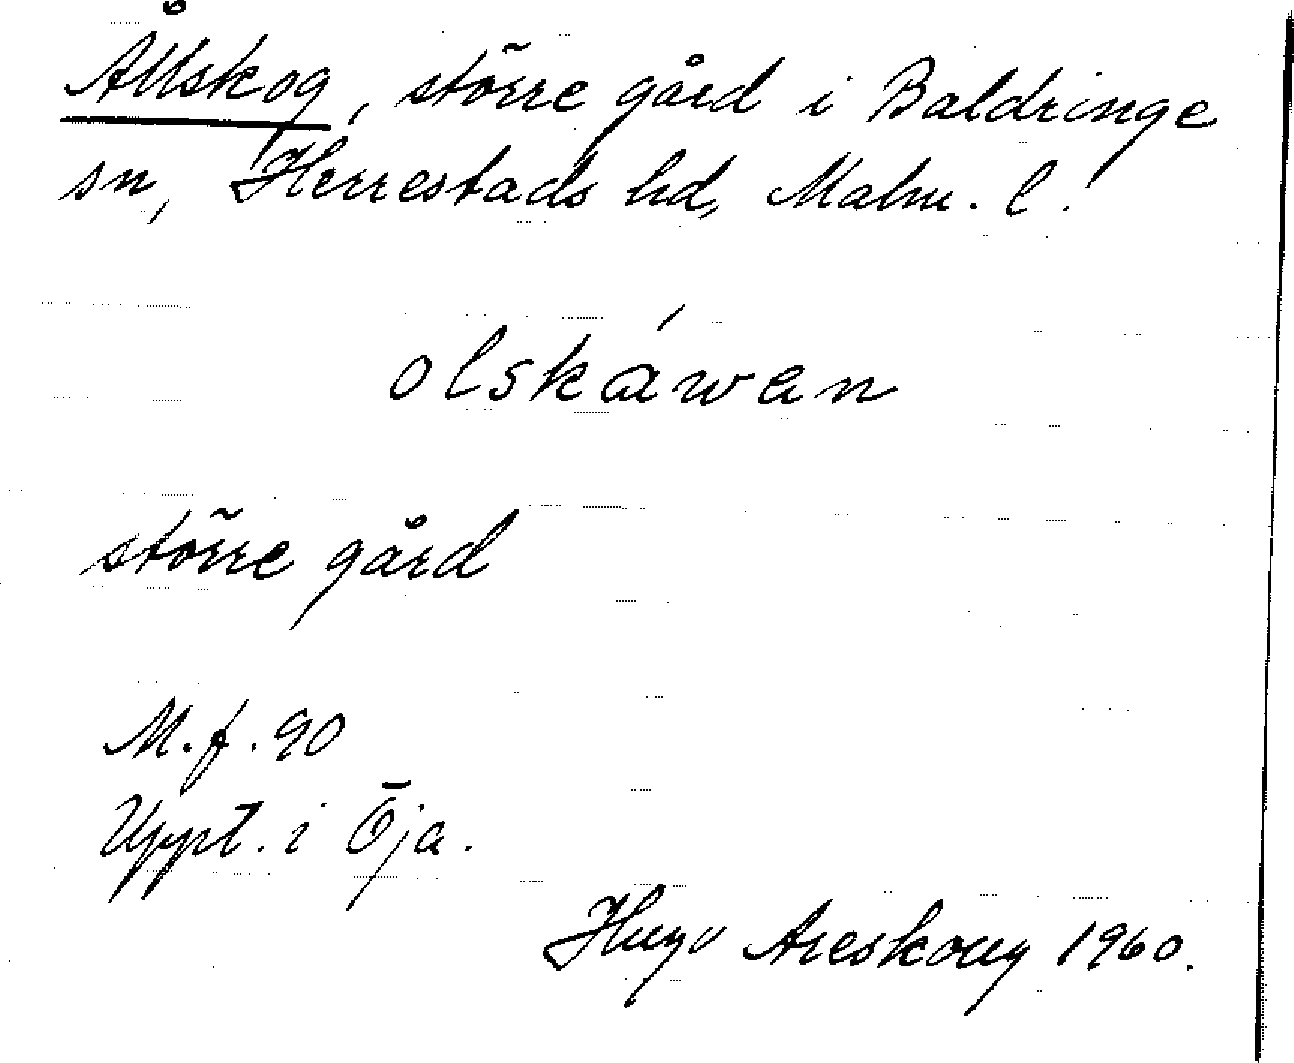 Ållskog, större gård i Baldringe
sn, Herrestads hd, Malm. l.
olskáwan
större gård
M.f. 90
Uppt. i Öja.
Hugo Areskoug 1960.